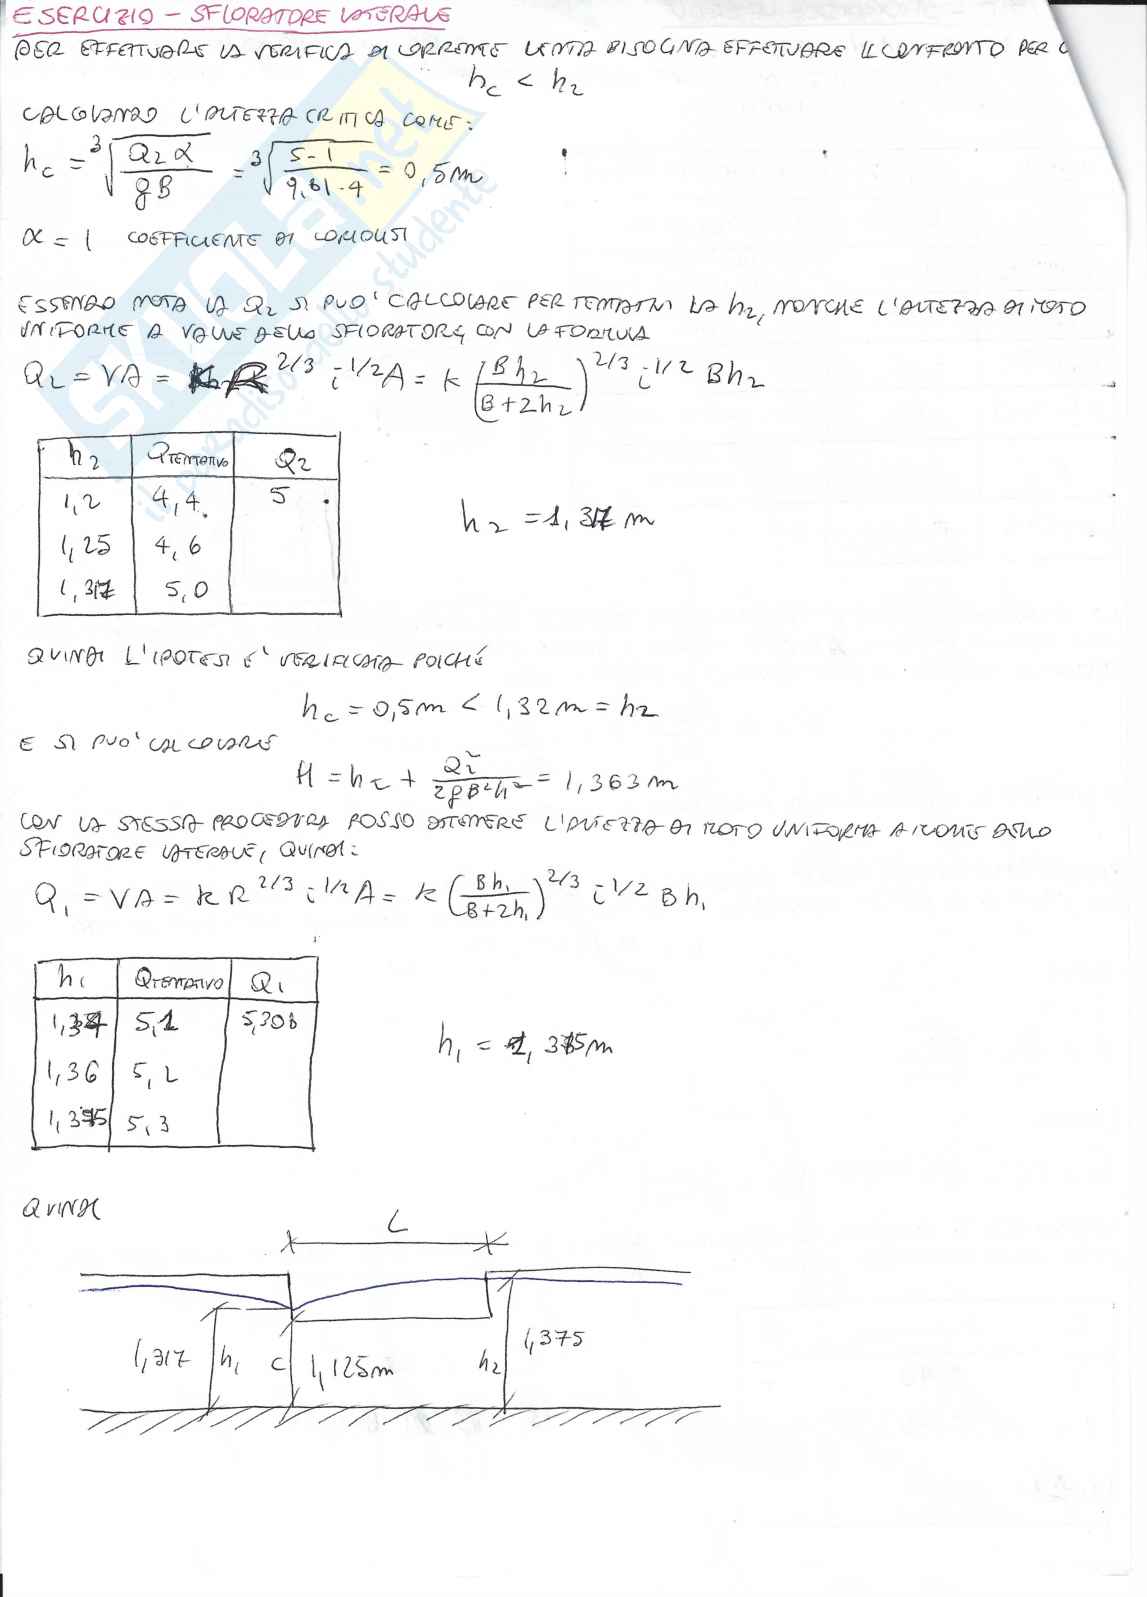 ESERCIZIO - SFIORATORE LATERALE
PER EFFETTUARE LA VERIFICA DI CORRENTE LENTA BISOGNA EFFETTUARE IL CONFRONTO PER C
hc < h2
CALCOLANDO L'ALTEZZA CRITICA COME:
hc = ∛(Q2 α / gB) = ∛(5-1 / 9,81·4) = 0,5m
α = 1 COEFFICIENTE DI CORIOLIS
ESSENDO NOTA LA Q2 SI PUO' CALCOLARE PER TENTATIVI LA h2, NONCHE L'ALTEZZA DI MOTO
UNIFORME A VALLE DELLO SFIORATORE, CON LA FORMULA
Q2 = VA = k R^2/3 i^1/2 A = k (Bh2 / B+2h2)^2/3 i^1/2 Bh2
h2 QTENTATIVO Q2
1,2 4,4 5
1,25 4,6
1,317 5,0
h2 = 1,317 m
QUINDI L'IPOTESI E' VERIFICATA POICHÉ
hc = 0,5m < 1,32m = h2
E SI PUO' CALCOLARE
H = hc + Q2² / 2gB²h² = 1,363m
CON LA STESSA PROCEDURA POSSO OTTENERE L'ALTEZZA DI MOTO UNIFORMA A MONTE DELLO
SFIORATORE LATERALE, QUINDI:
Q1 = VA = k R^2/3 i^1/2 A = k (Bh1 / B+2h1)^2/3 i^1/2 Bh1
h1 QTENTATIVO Q1
5,1 5,308
1,36 5,2
1,375 5,3
h1 = 1,375m
QUINDI
L
1,317 h1 C 1,125m h2 1,375
SKUOLA.net
il paradiso dello studente